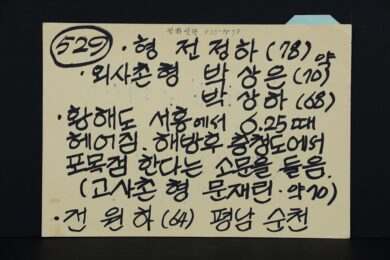 529 · 형 전정하 (78) 약
· 외사촌형 박상은 (70)
박상하 (68)
· 황해도 서흥에서 6.25때
헤어짐. 해방후 충청도에서
포목점 한다는 소문을 들음.
(고사촌 형 문재린 · 약70)
· 전원하 (64) 평남 순천